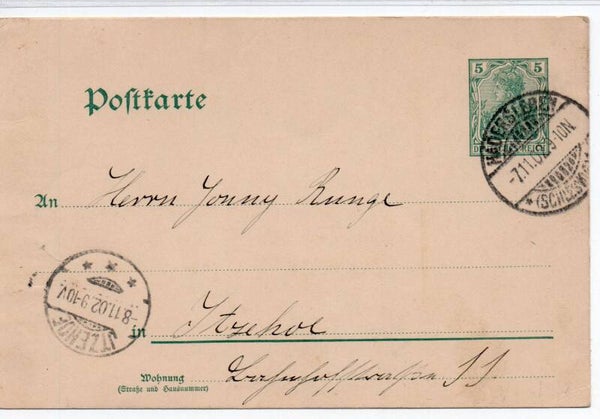 5 5
Postkarte
DEUTSCHES REICH
HADERSLEBEN
-7.11.02.9-10N
*(SCHLESWIG)
An Herrn Jonny Runge
ITZEHOE
-8.11.02.9-10V
in Itzehoe
Wohnung
(Straße und Hausnummer)
Bahnhofstraße 11